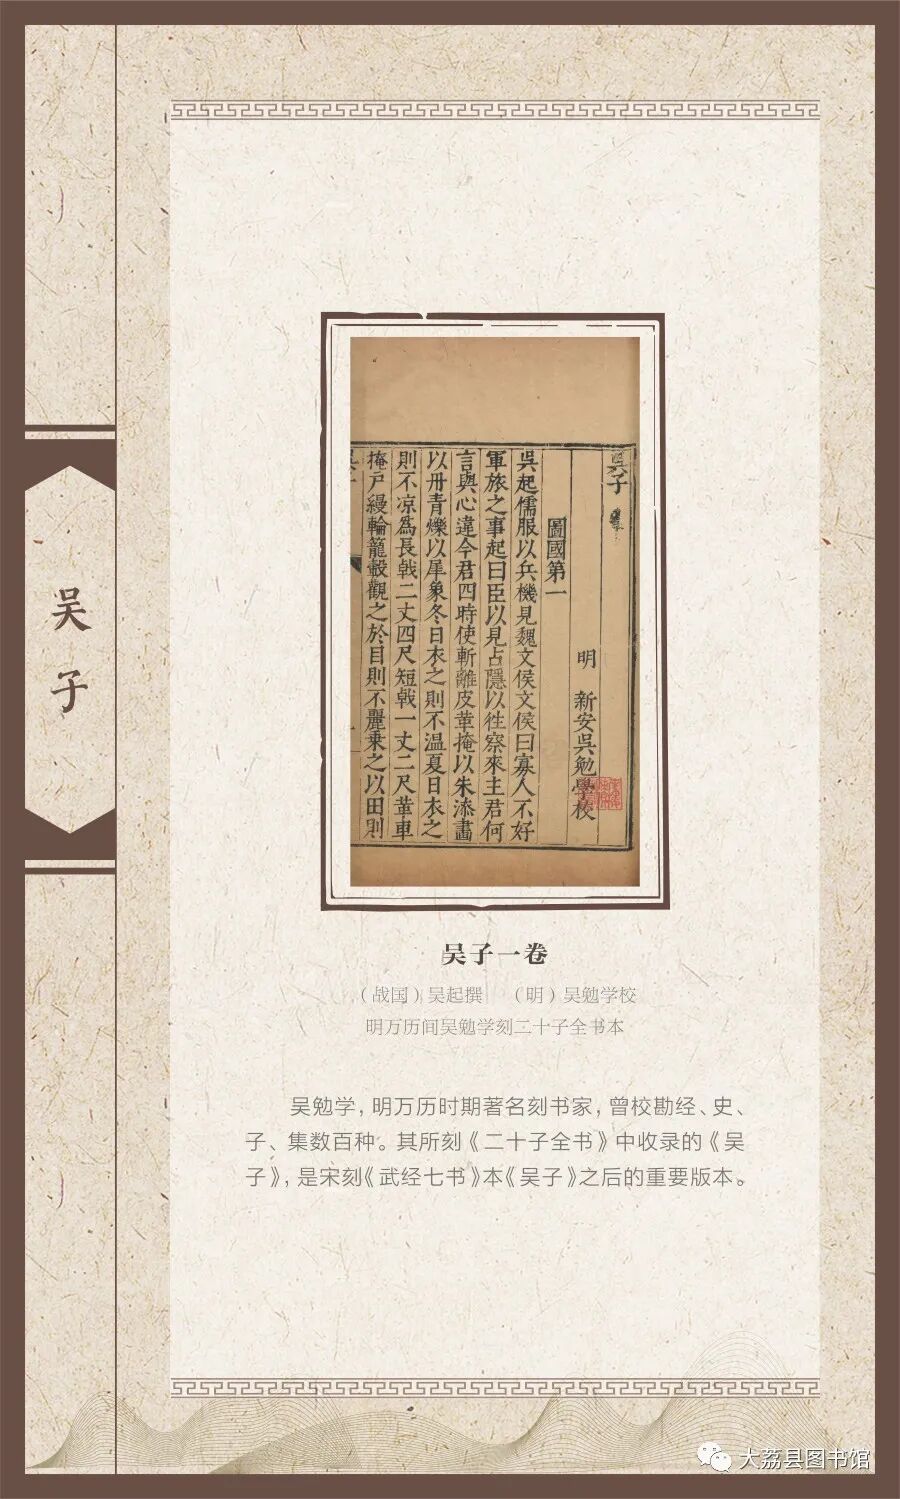 吴子
吳子
明 新安吳勉學校
圖國第一
吳起儒服以兵機見魏文侯文侯曰寡人不好
軍旅之事起曰臣以見占隱以徃察來主君何
言與心違今君四時使斬離皮革掩以朱漆畫
以丹青爍以犀象冬日衣之則不温夏日衣之
則不凉爲長戟二丈四尺短戟一丈二尺革車
掩戸縵輪籠轂觀之於目則不麗乗之以田則
吴子一卷
（战国）吴起撰 （明）吴勉学校
明万历间吴勉学刻二十子全书本
吴勉学，明万历时期著名刻书家，曾校勘经、史、
子、集数百种。其所刻《二十子全书》中收录的《吴
子》，是宋刻《武经七书》本《吴子》之后的重要版本。
大荔县图书馆